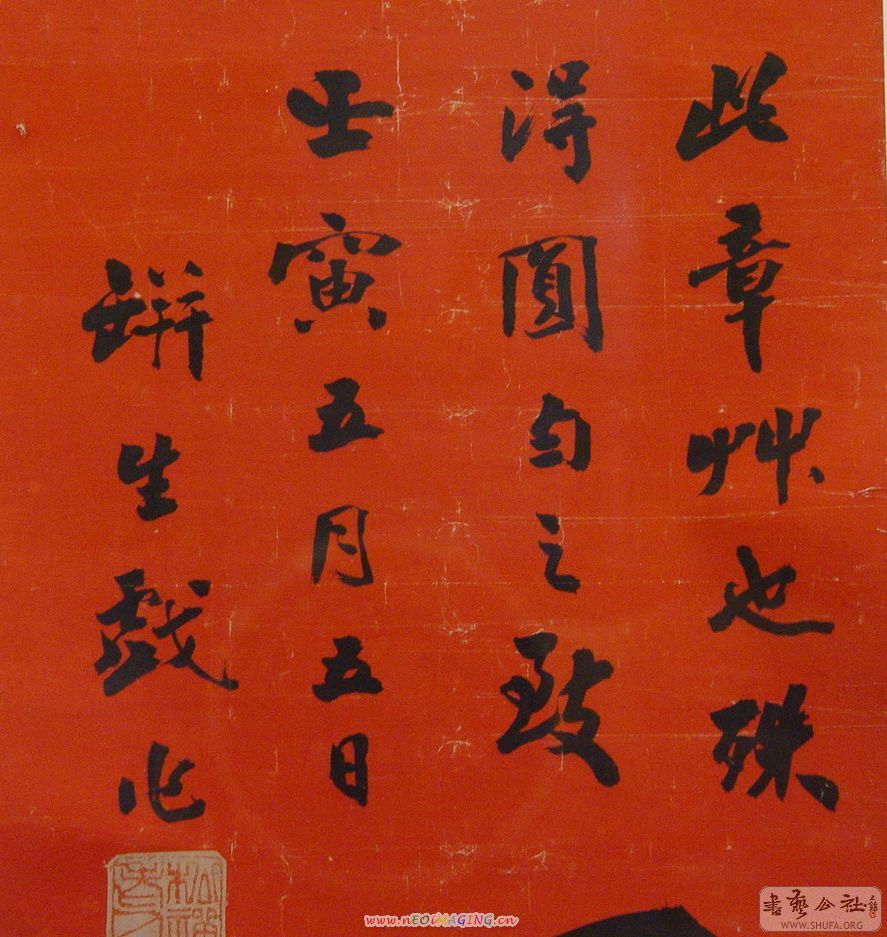 此章艸也殊
得圓匀之致
壬寅五月五日
缾生戲作
www.nEOiMAGING.cn
書藝公社
WWW.SHUFA.ORG